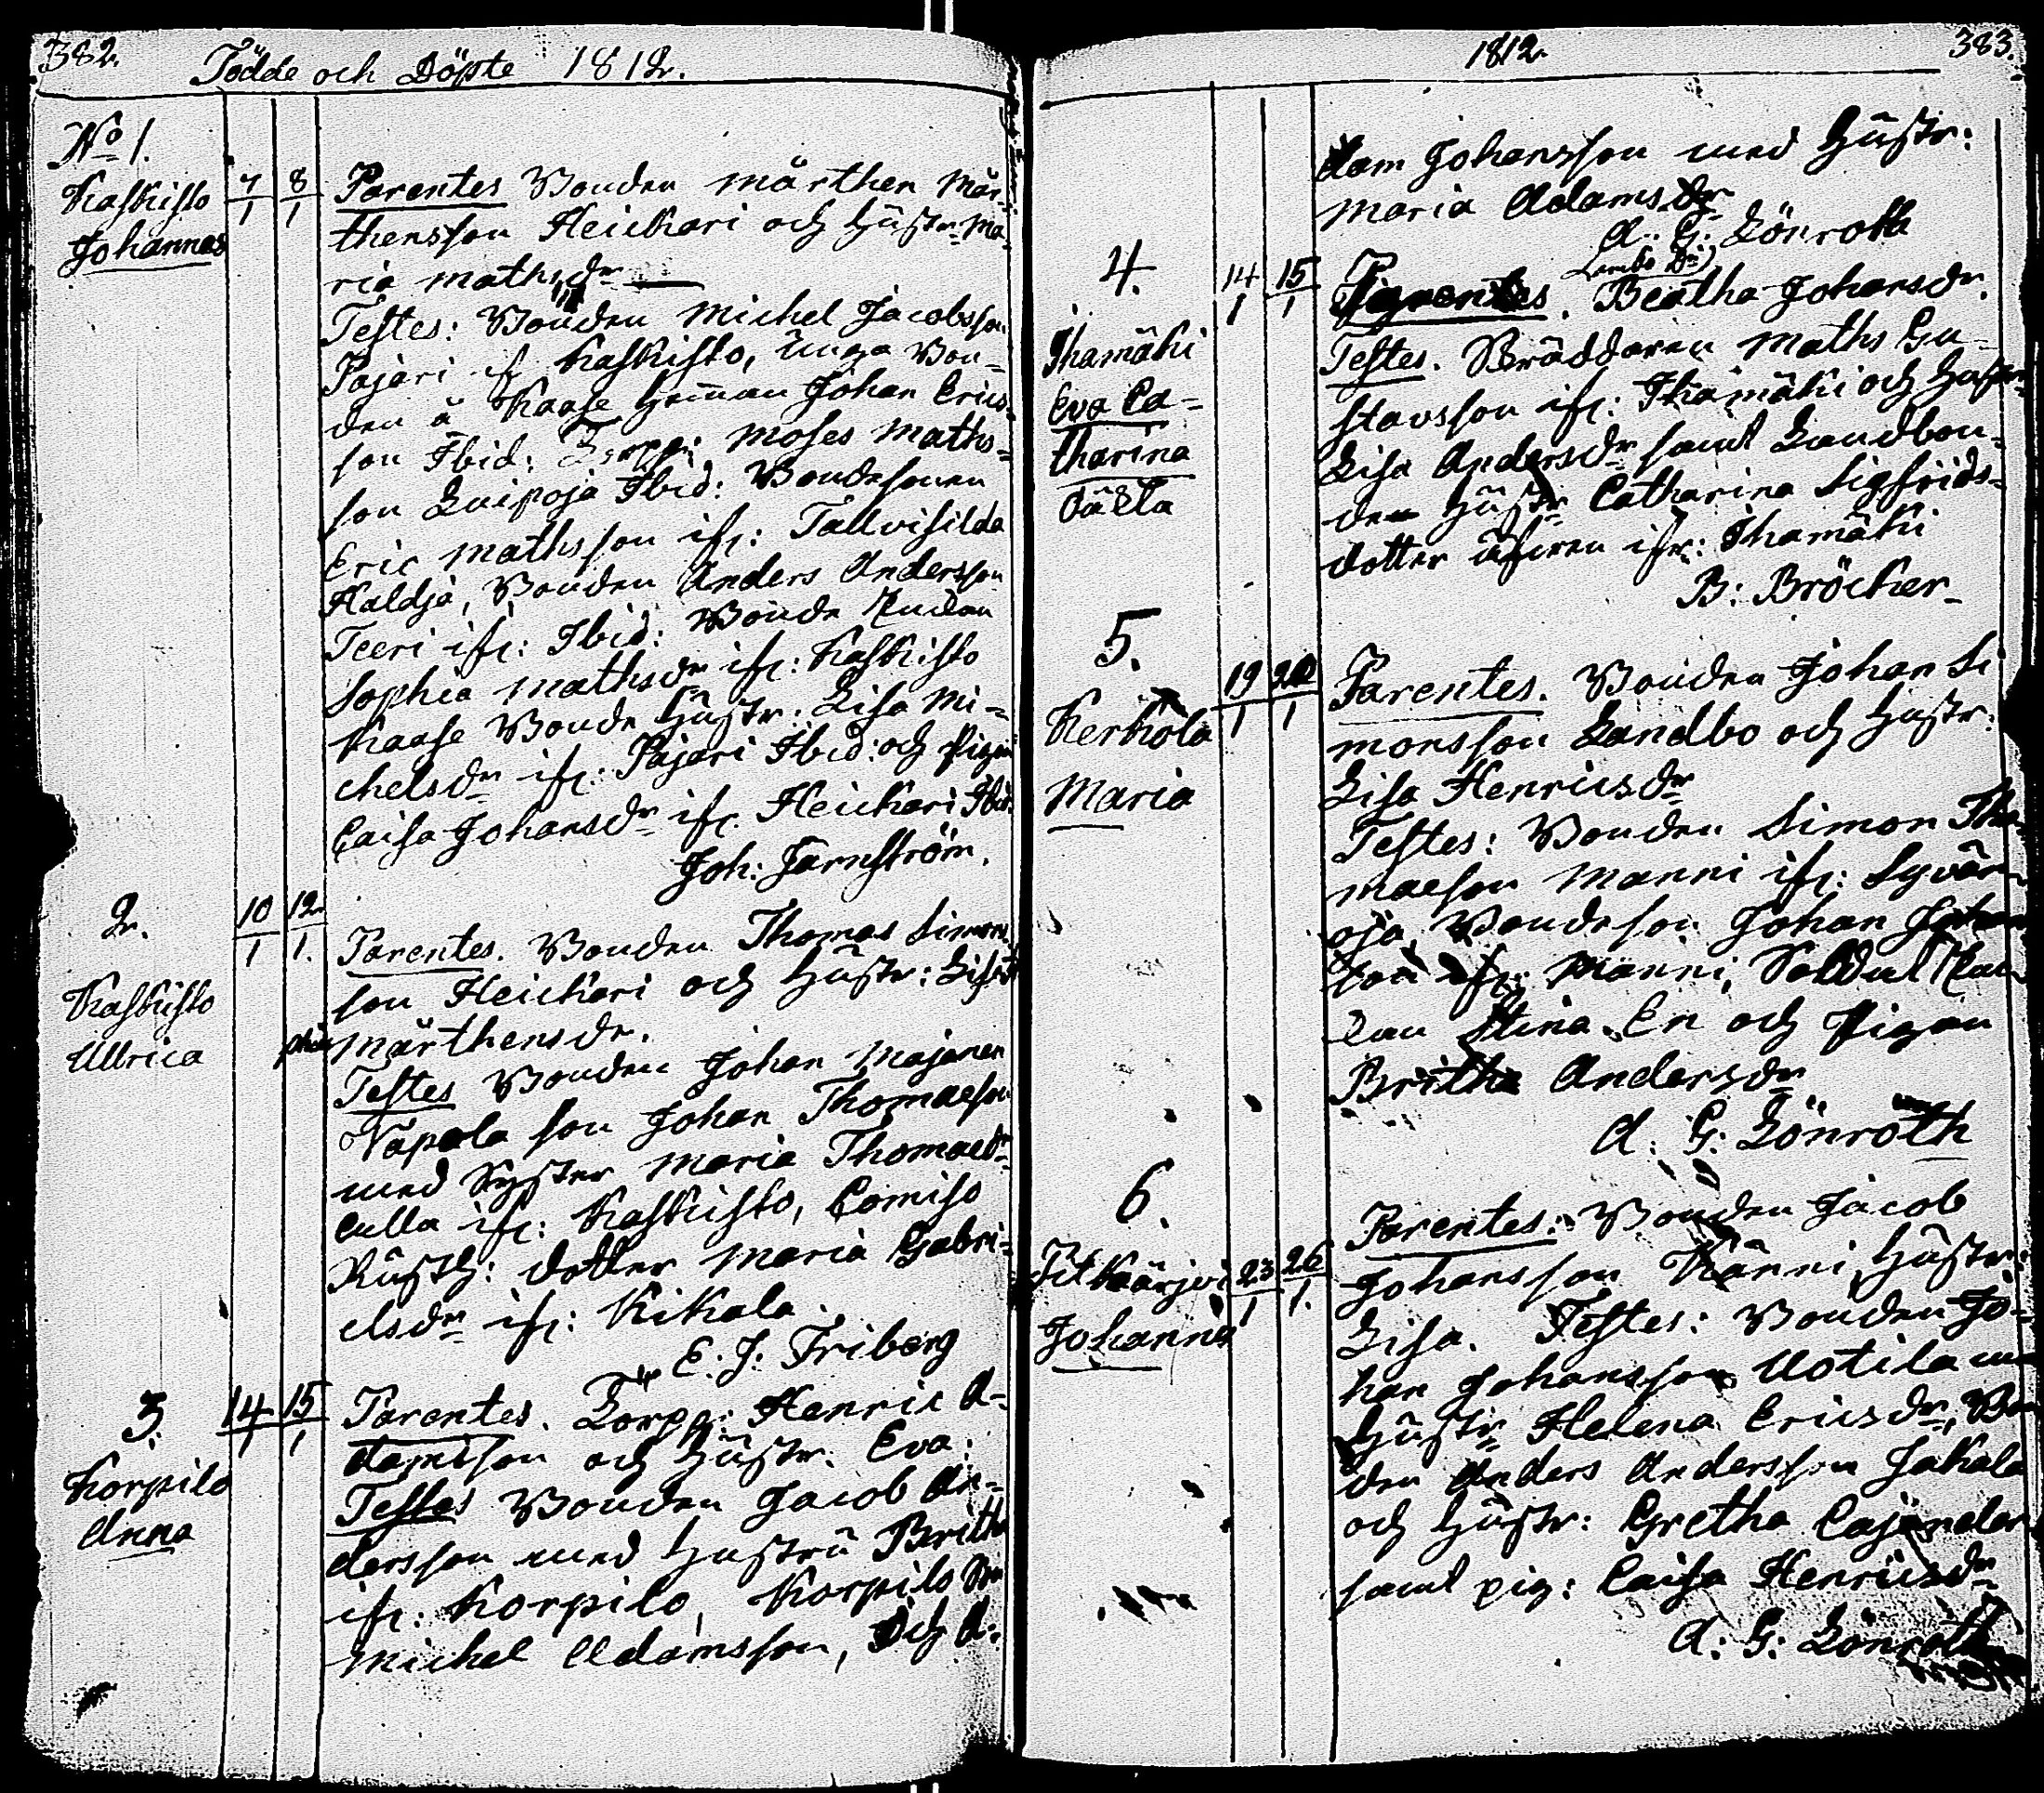 382.
Födde och Döpte 1812.
No 1.
Kaskisto
Johannes
7/1 8/1
Parentes Bonden Mårthen Mår-
thensson Heickari och Hustr. Ma-
ria Mathsdr
Testes: Bonden Michel Jacobsson
Pajari if Kaskisto, Unga Bon-
den å Kaase Heman Johan Erics-
son Ibid: Torpp: Moses Maths-
son Luipoja Ibid: Bondesonen
Eric Mathsson ifr: Tallvisilda
Haldja, Bonden Anders Andersson
Teeri ifr: Ibid: Bonde Enckan
Sophia Mathsdr ifr: Kaskisto
Kaase Bonde Hustr: Lisa Mi-
chelsdr ifr: Pajari Ibid: och Pigan
Caisa Johansdr ifr. Heickari Ibid.
Joh: Färnström.
2.
Kaskisto
Ulrica
10/1 12/1.
Parentes. Bonden Thomas Simons
son Heickari och Hustr:
Mårthensdr.
Testes Bonden Johan Majanen
Napala son Johan Thomaeson
med Syster Maria Thomaedr
culla ifr: Kaskisto, Comiso
Rusth: dotter Maria Gabri-
elsdr ifr: Kikala.
E. J. Friberg
3.
Korpilo
Anna
14/1 15/1
Parentes. Torpp: Henric A-
damsson och Hustr. Eva.
Testes Bonden Jacob An-
dersson med Hustru Britha
ifr: Korpilo, Korpilo
Michel Adamsson, och A.
1812.
383.
dam Johansson med Hustr:
Maria Adamsdr
A. G: Lönroth
4.
Ihamäki
Eva Ca-
tharina
oäkta
14/1 15/1
Parentes. Beatha Johansdr.
Testes. Skräddaren Maths Gu-
stavsson ifr: Ihamäki och Hustr
Lisa Andersdr samt Landbon-
den Hustr Catharina Sigfrids-
dotter äfwen ifr: Ihamäki
B: Bröcker
5.
Kerkola
Maria
19/1 20/1
Parentes. Bonden Johan Si
monsson Landbo och Hustr:
Lisa Henricsdr
Testes: Bonden Simon Tho-
maeson Manni ifr: Syvän-
oja Bondeson Johan Johan
son ifr: Manni, Soldat Enc-
kan Stina En och Pigan
Britha Andersdr
A: G: Lönroth
6.
Pitkäjärvi
Johanna
23/1 26/1.
Parentes: Bonden Jacob
Johansson Känni, Hustr:
Lisa. Testes: Bonden Jo-
han Johansson Uotila m
Hustr Helena Ericsdr, Bon
den Anders Andersson Jakala
och Hustr: Gretha Cajander
samt pig: Caisa Henricsdr
A: G: Lönroth